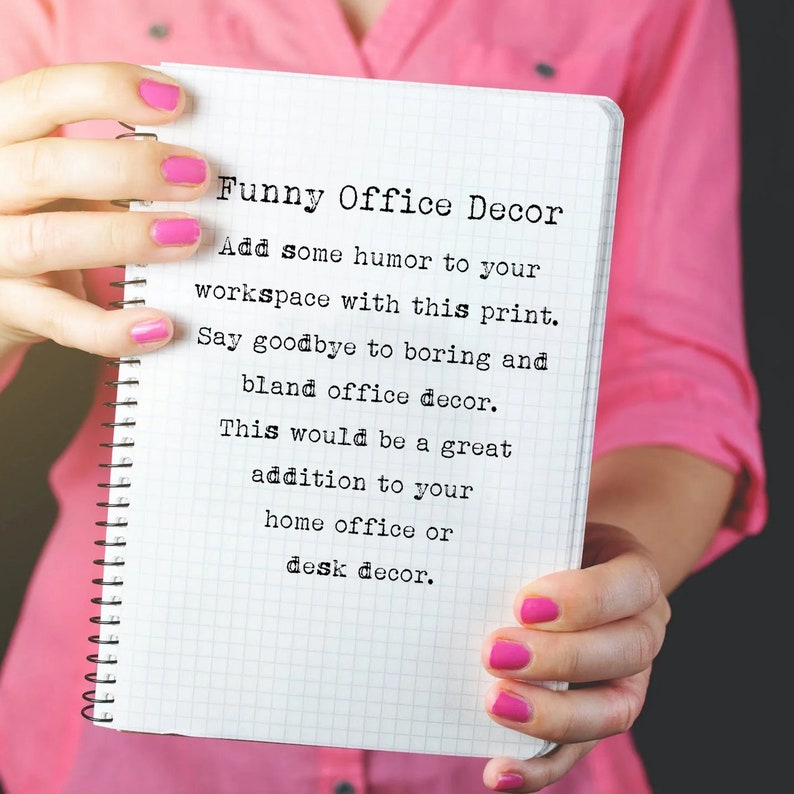 Funny Office Decor
Add some humor to your
workspace with this print.
Say goodbye to boring and
bland office decor.
This would be a great
addition to your
home office or
desk decor.